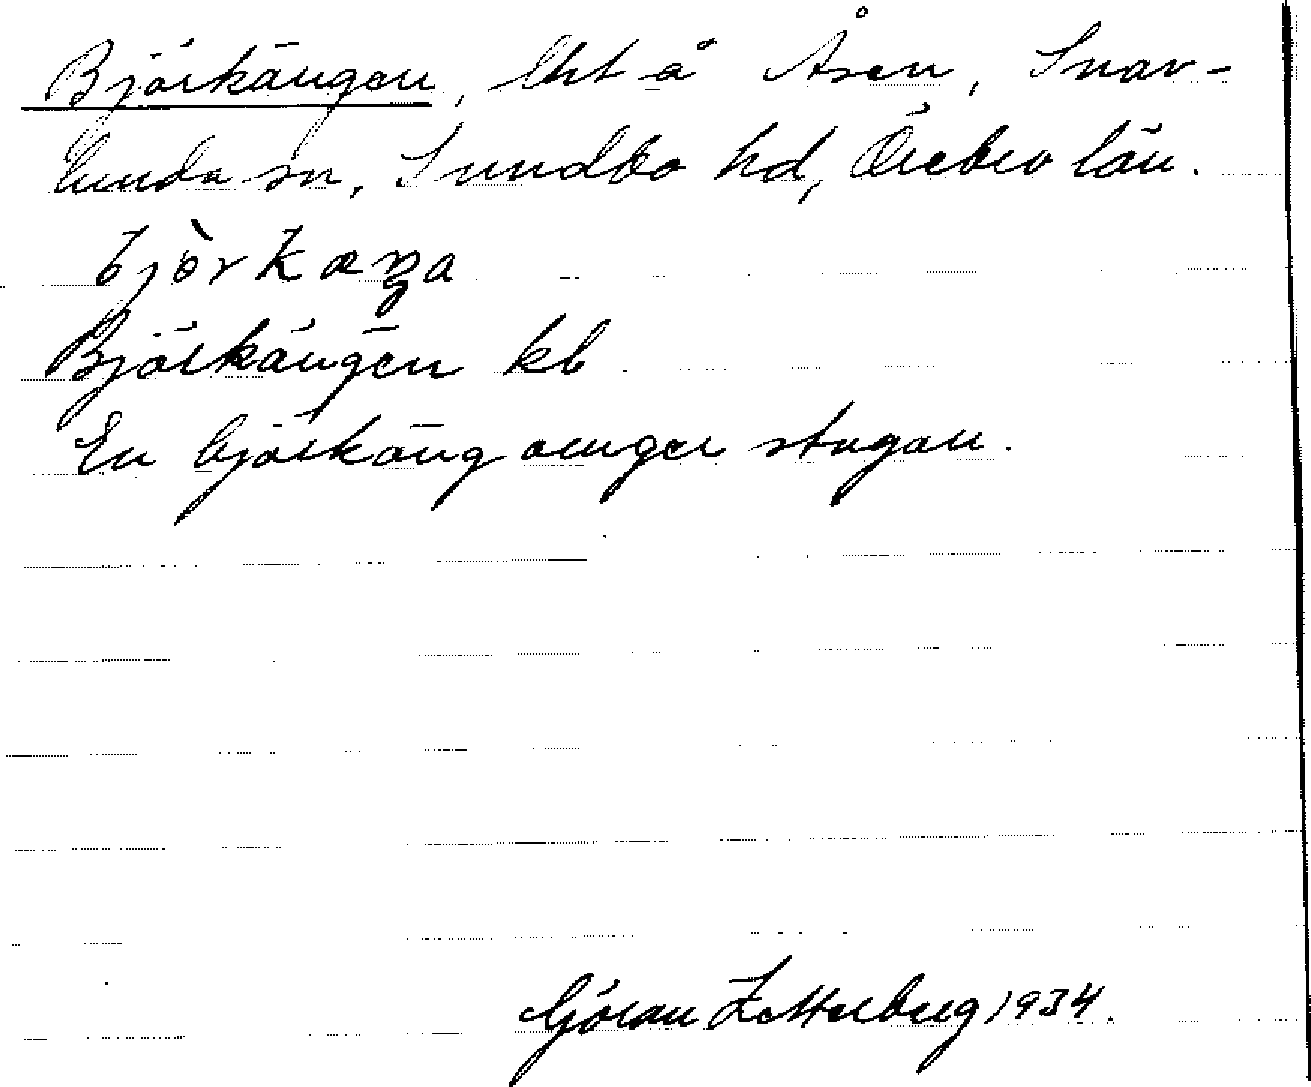 Björkängen, lht å Åsen, Snav-
lunda sn, Sundbo hd, Örebro län.
bjòrkæŋa
Björkängen kb
En björkäng omger stugan.
Göran Zetterberg 1934.